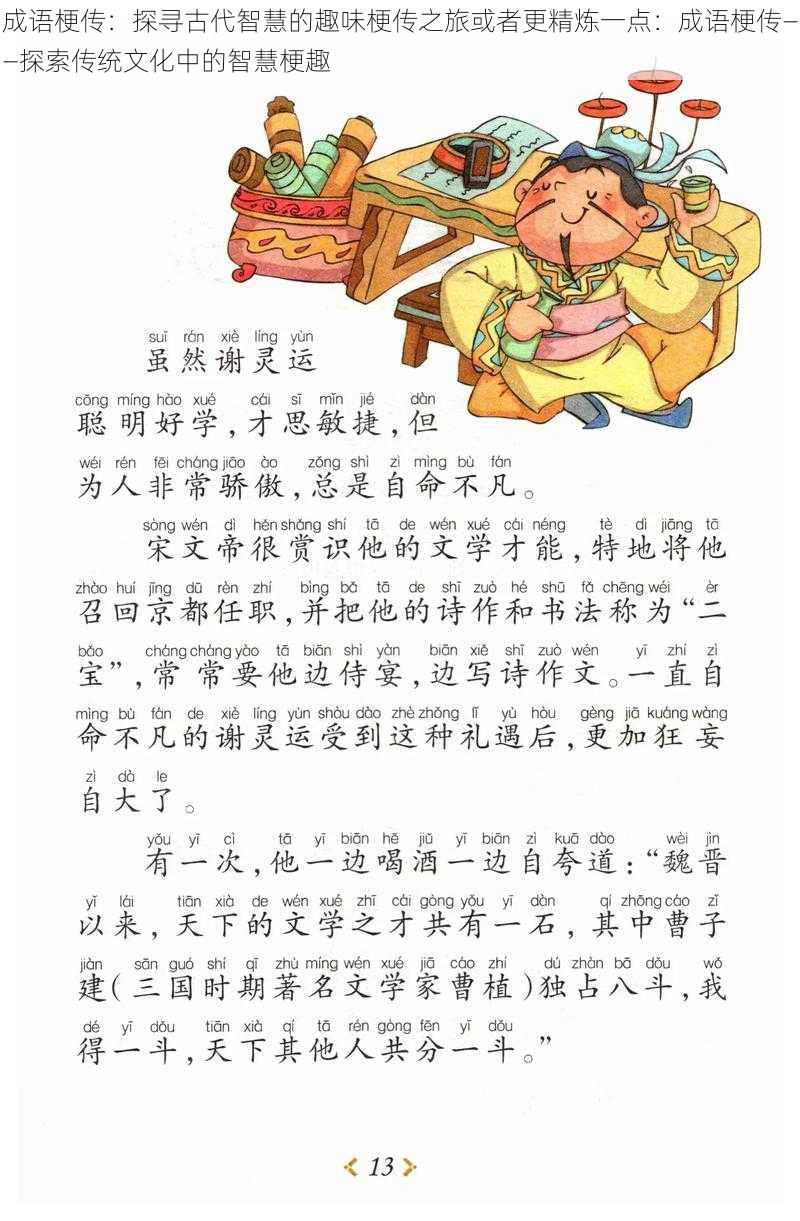 成语梗传：探寻古代智慧的趣味梗传之旅或者更精炼一点：成语梗传—
—探索传统文化中的智慧梗趣
suī rán xiè líng yùn
虽然谢灵运
cōng míng hào xué cái sī mǐn jié dàn
聪明好学，才思敏捷，但
wéi rén fēi cháng jiāo ào zǒng shì zì mìng bù fán
为人非常骄傲，总是自命不凡。
sòng wén dì hěn shǎng shí tā de wén xué cái néng tè dì jiāng tā
宋文帝很赏识他的文学才能，特地将他
zhào huí jīng dū rèn zhí bìng bǎ tā de shī zuò hé shū fǎ chēng wéi èr
召回京都任职，并把他的诗作和书法称为“二
bǎo cháng cháng yào tā biān shì yàn biān xiě shī zuò wén yī zhí zì
宝”，常常要他边侍宴，边写诗作文。一直自
mìng bù fán de xiè líng yùn shòu dào zhè zhǒng lǐ yù hòu gèng jiā kuáng wàng
命不凡的谢灵运受到这种礼遇后，更加狂妄
zì dà le
自大了。
yǒu yī cì tā yī biān hē jiǔ yī biān zì kuā dào wèi jìn
有一次，他一边喝酒一边自夸道：“魏晋
yǐ lái tiān xià de wén xué zhī cái gòng yǒu yī dàn qí zhōng cáo zǐ
以来，天下的文学之才共有一石，其中曹子
jiàn sān guó shí qī zhù míng wén xué jiā cáo zhí dú zhàn bā dǒu wǒ
建（三国时期著名文学家曹植）独占八斗，我
dé yī dǒu tiān xià qí tā rén gòng fēn yī dǒu
得一斗，天下其他人共分一斗。”
13